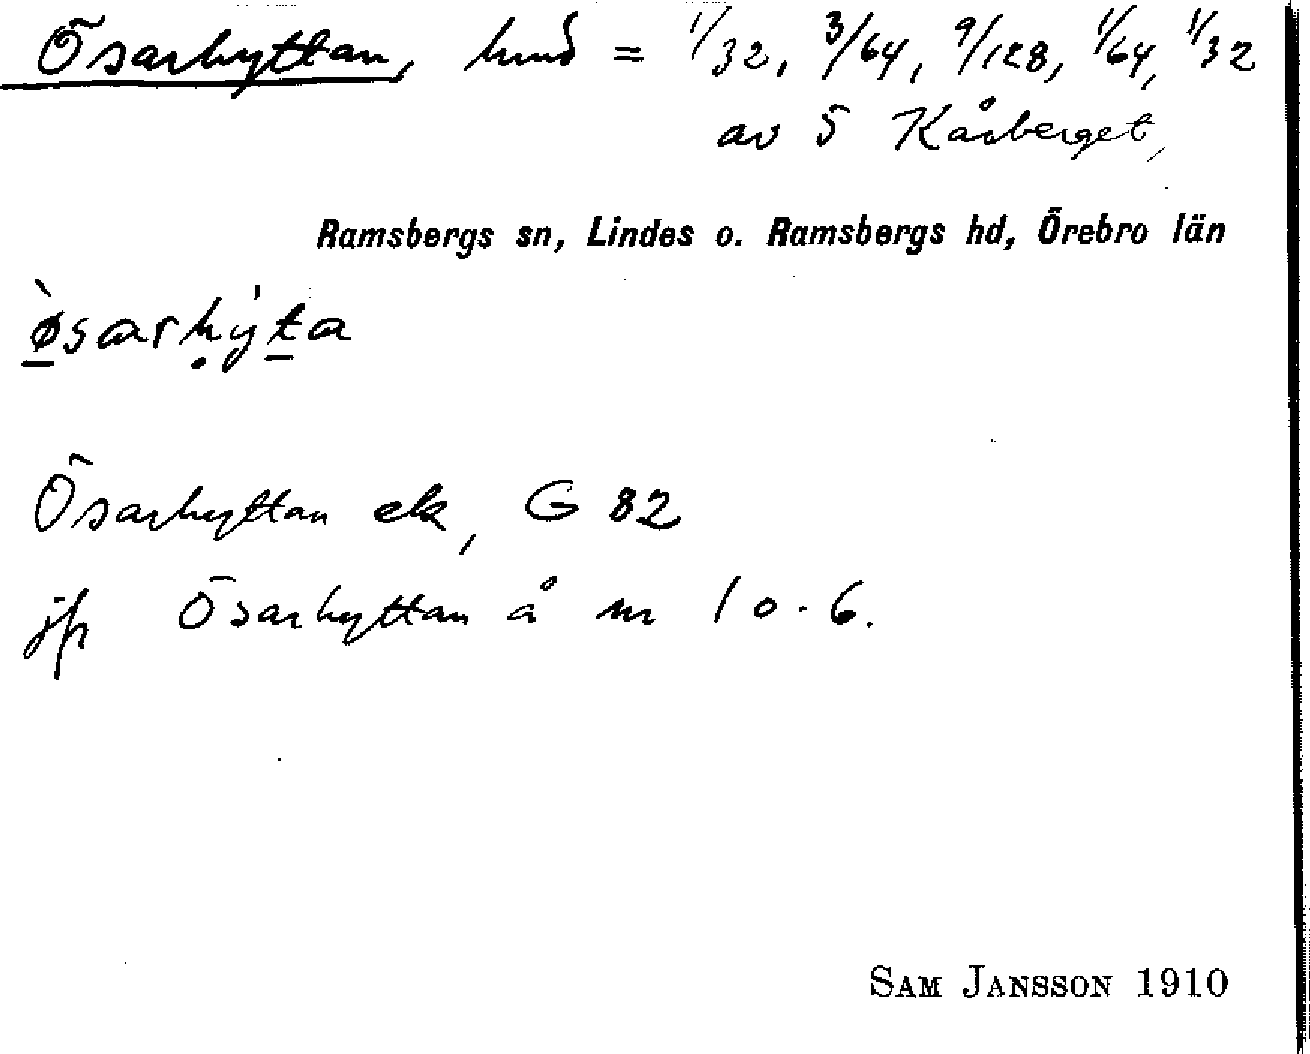 Ösarhyttan, hmd = 1/32, 3/64, 9/128, 1/64, 1/32
av 5 Kåsberget,
Ramsbergs sn, Lindes o. Ramsbergs hd, Örebro län
ø̀sarhy̍ta
Ösarhyttan ek, G 82
jfr Ösarhyttan å nr 10 · 6.
SAM JANSSON 1910